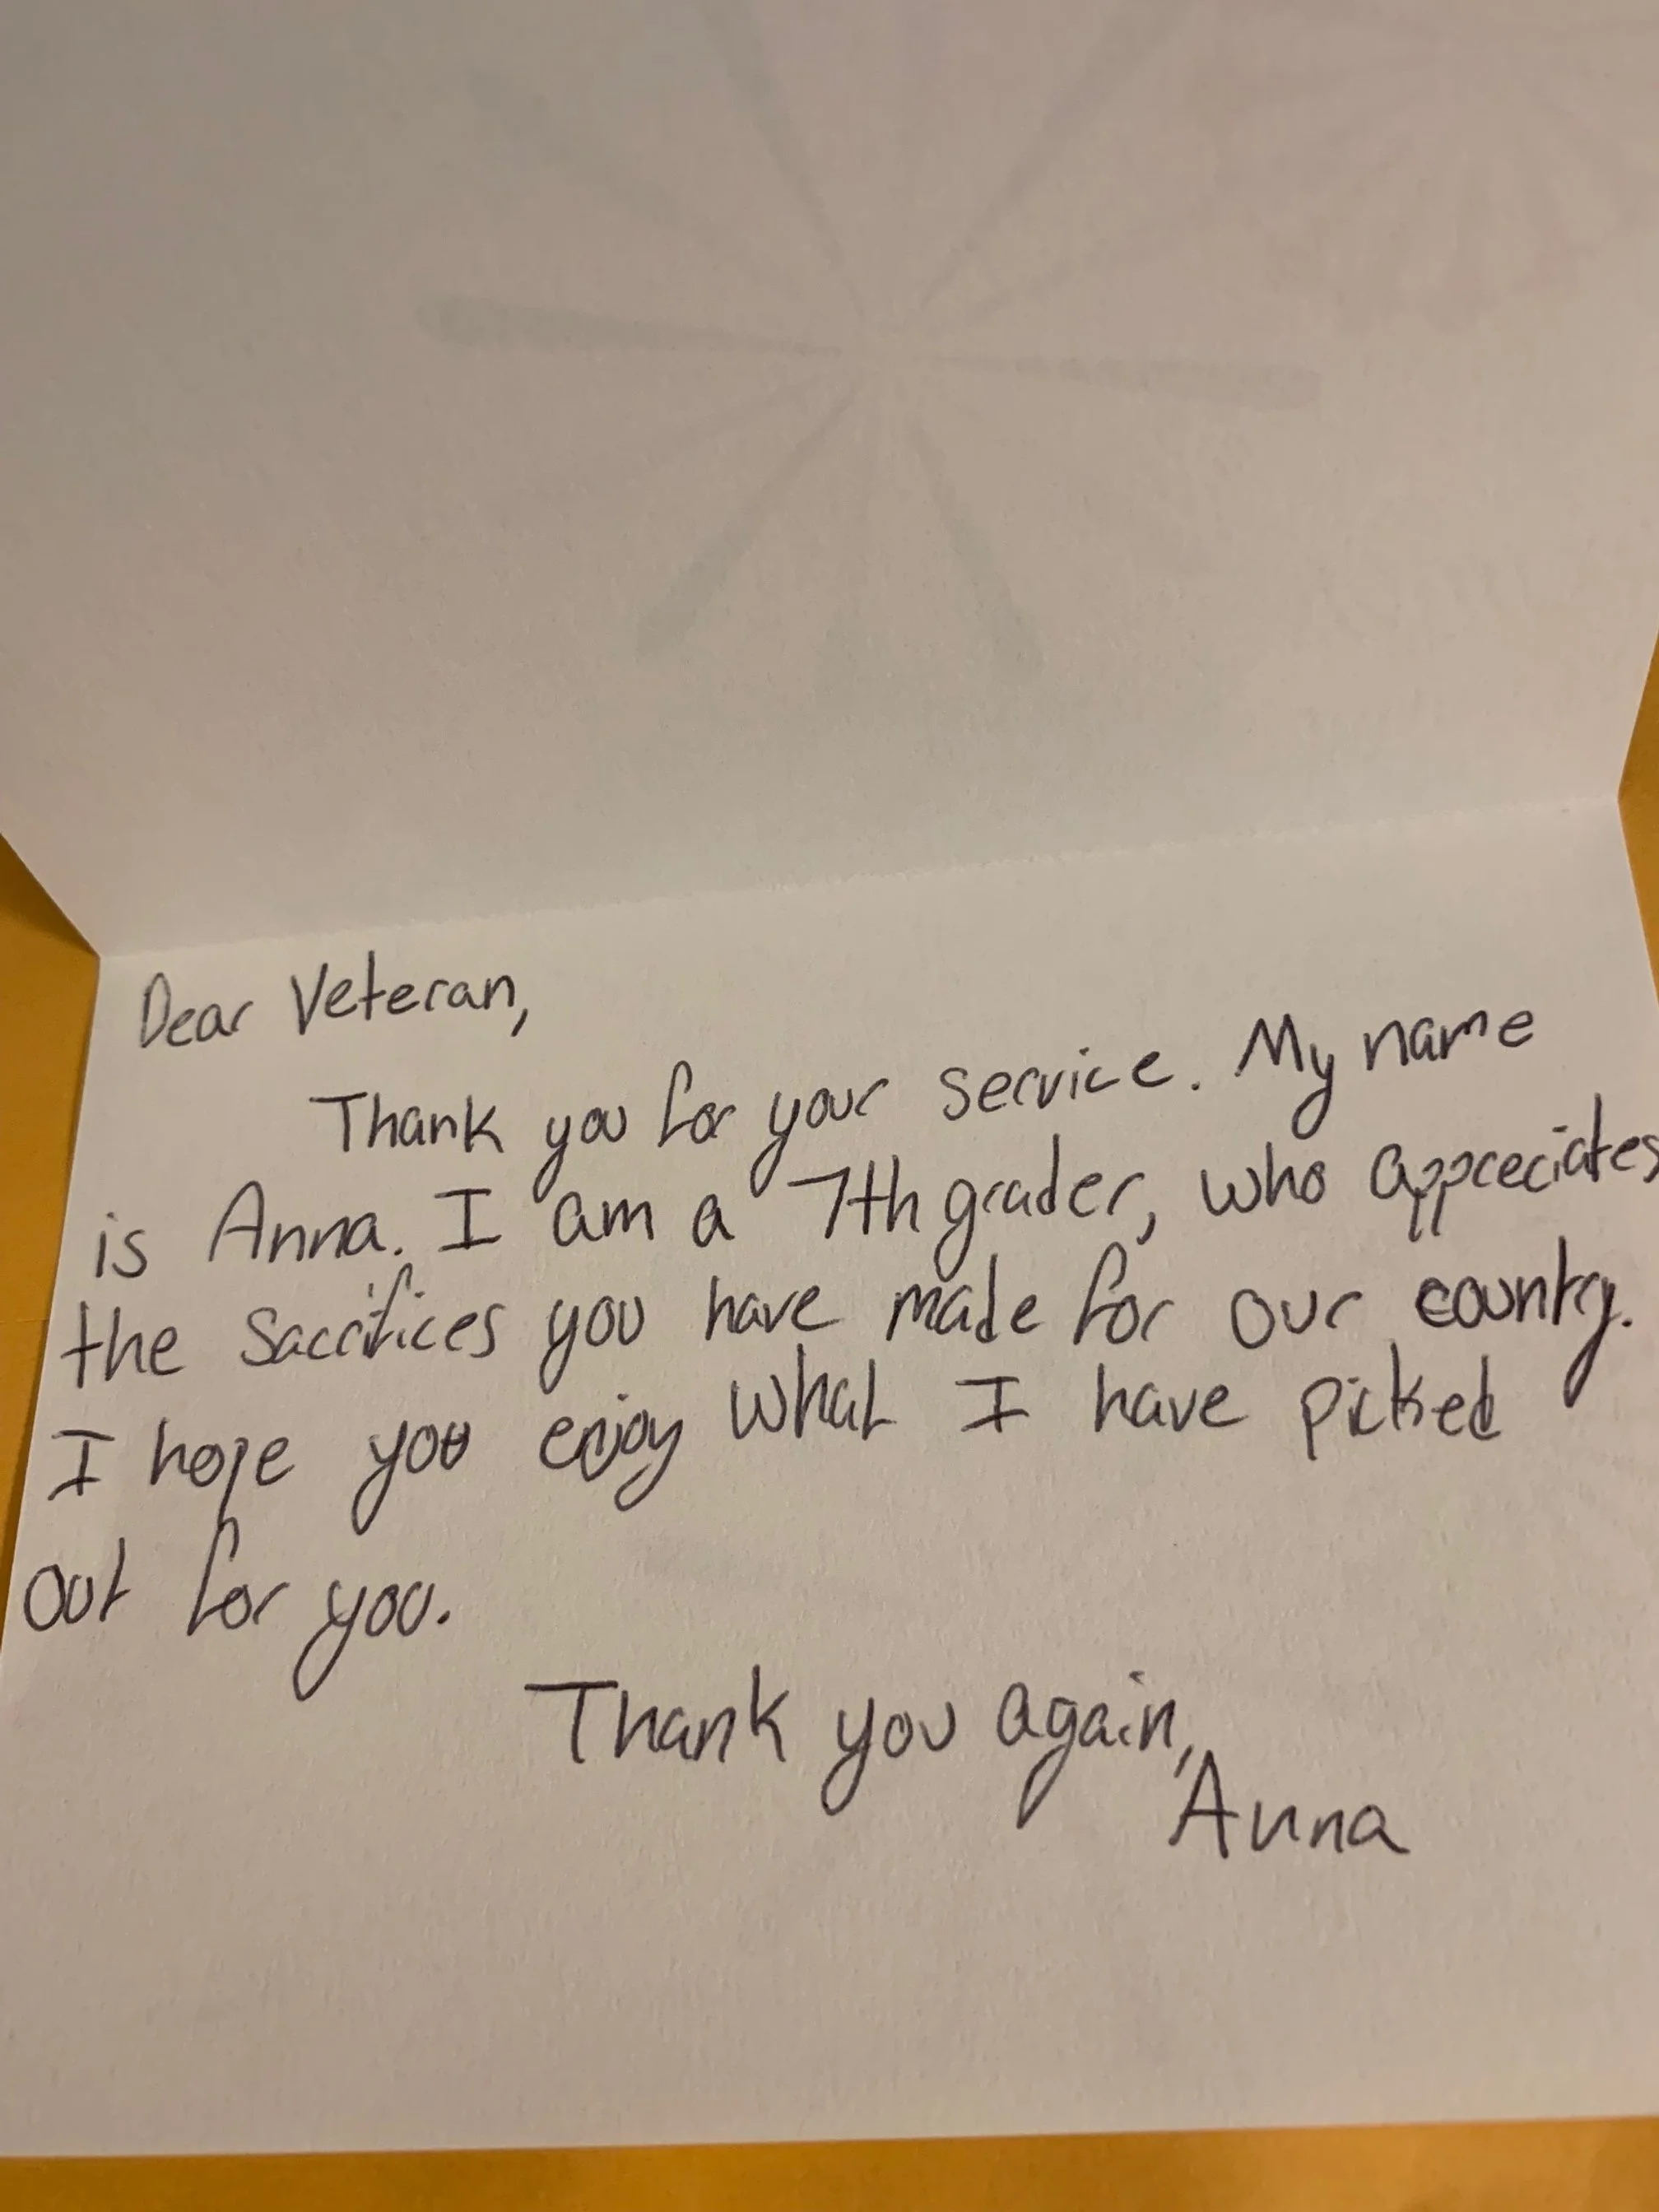 Dear Veteran,
Thank you for your service. My name
is Anna. I am a 7th grader, who appreciates
the sacrifices you have made for our country.
I hope you enjoy what I have picked
out for you.
Thank you again,
Anna